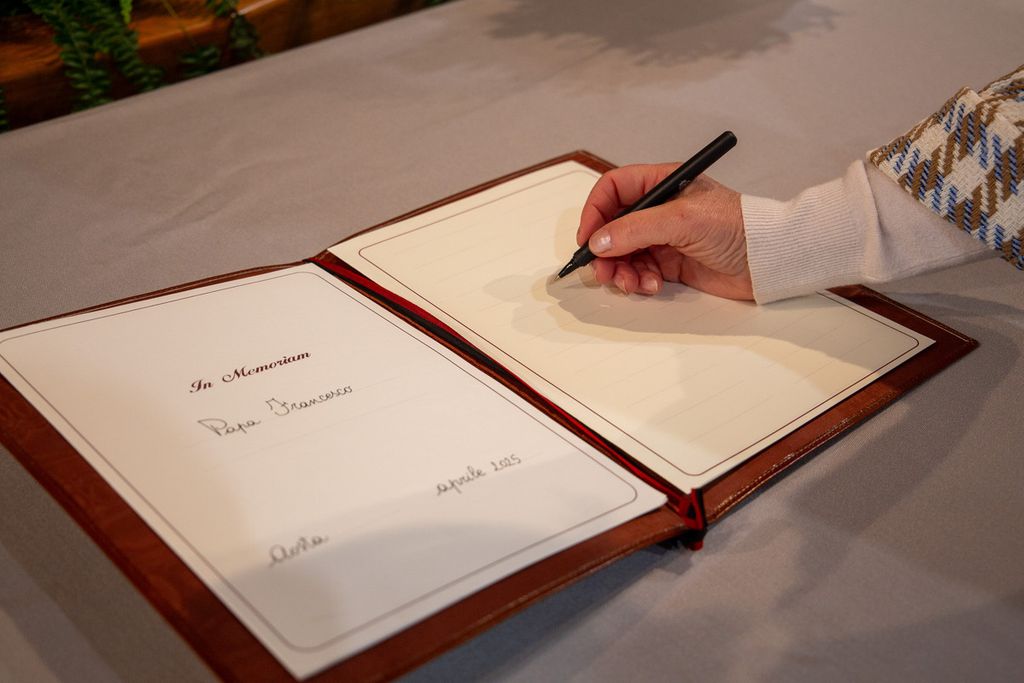 In Memoriam
Papa Francesco
aprile 2025
Aosta